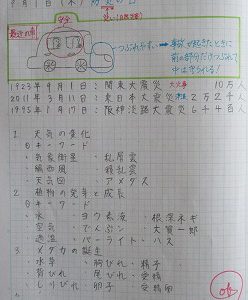 9月1日(木) 防災の日
安全
つぶれやすい→事故が起きたときに
前の部分だけつぶれて
中は守られる!
1923年9月1日:関東大震災 大火事 10万人
2011年3月11日:東日本大震災 津波 2万2千人
1995年1月17日:阪神淡路大震災 6千4百人
1 天気の変化
6キーワード
・気象衛星 ・乱層雲
・偏西風 ・積乱雲
・天気図 ・アメダス
2 植物の発芽と成長
8キーワード
・水 ・ヨウ素液 ・根深ネギ
・空気 ・でんぷん ・大賀一郎
・適温 ・バーライト ・ハス
3 メダカの誕生
・水草 ・胸びれ ・精子
・背びれ ・尾びれ ・受精
・しりびれ ・卵子 ・受精卵